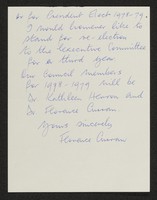 as our President Elect 1978-79.
I would however like to
stand for re-election
to the Executive Committee
for a third year.
Our Council members
for 1978-1979 will be
Dr Kathleen Heaven and
Dr Florence Curran
Yours sincerely
Florence Curran